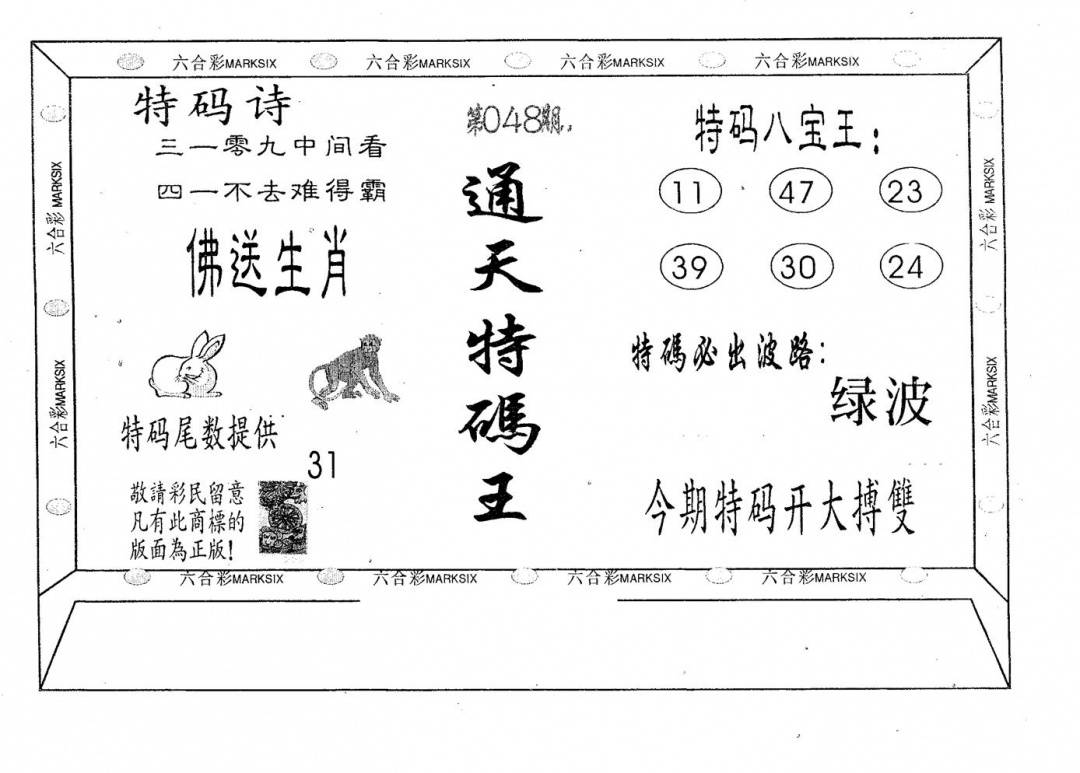 六合彩MARKSIX 六合彩MARKSIX 六合彩MARKSIX 六合彩MARKSIX
六合彩MARKSIX
六合彩MARKSIX
特码诗
三一零九中间看
四一不去难得霸
佛送生肖
特码尾数提供
31
敬請彩民留意
凡有此商標的
版面為正版!
第048期:
通天特碼王
特码八宝王:
11 47 23
39 30 24
特碼必出波路:
绿波
今期特码开大搏雙
六合彩MARKSIX
六合彩MARKSIX
六合彩MARKSIX 六合彩MARKSIX 六合彩MARKSIX 六合彩MARKSIX